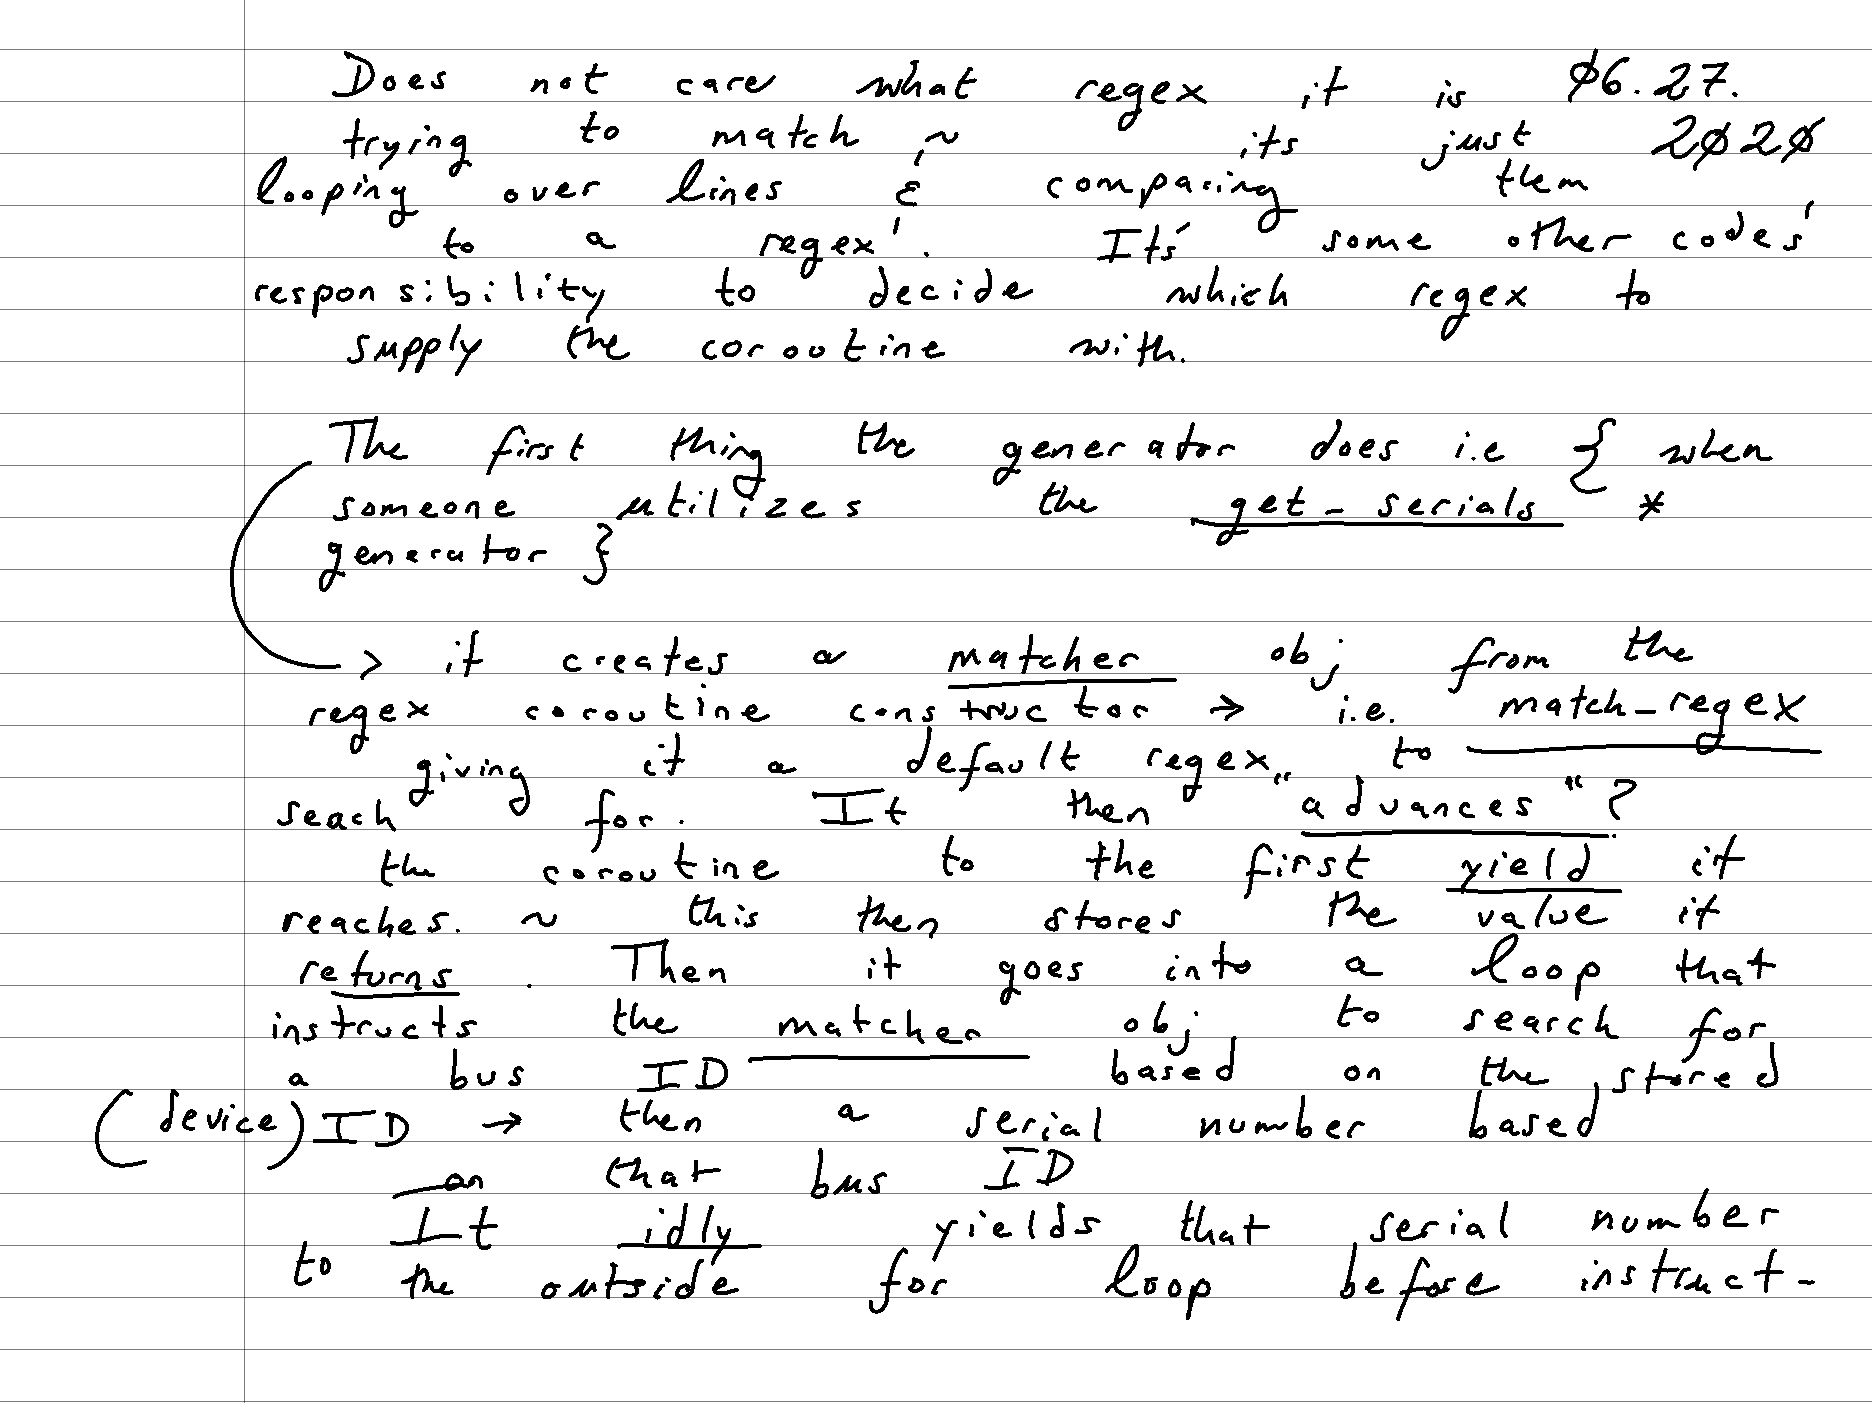 Does not care what regex it is Ø6.27.
trying to match ~ 'its just 2Ø2Ø
looping over lines & comparing them
to a regex'. Its' some other codes'
responsibility to decide which regex to
supply the coroutine with.
The first thing the generator does i.e { when
someone utilizes the get_serials *
generator }
> it creates a matcher obj from the
regex coroutine constructor → i.e. match_regex
giving it a default regex to
seach for. It then "advances"?
the coroutine to the first yield it
reaches. ~ this then stores the value it
returns. Then it goes into a loop that
instructs the matcher obj to search for
a bus ID based on the stored
(device) ID → then a serial number based
on that bus ID
It idly yields that serial number
to the outside for loop before instruct-